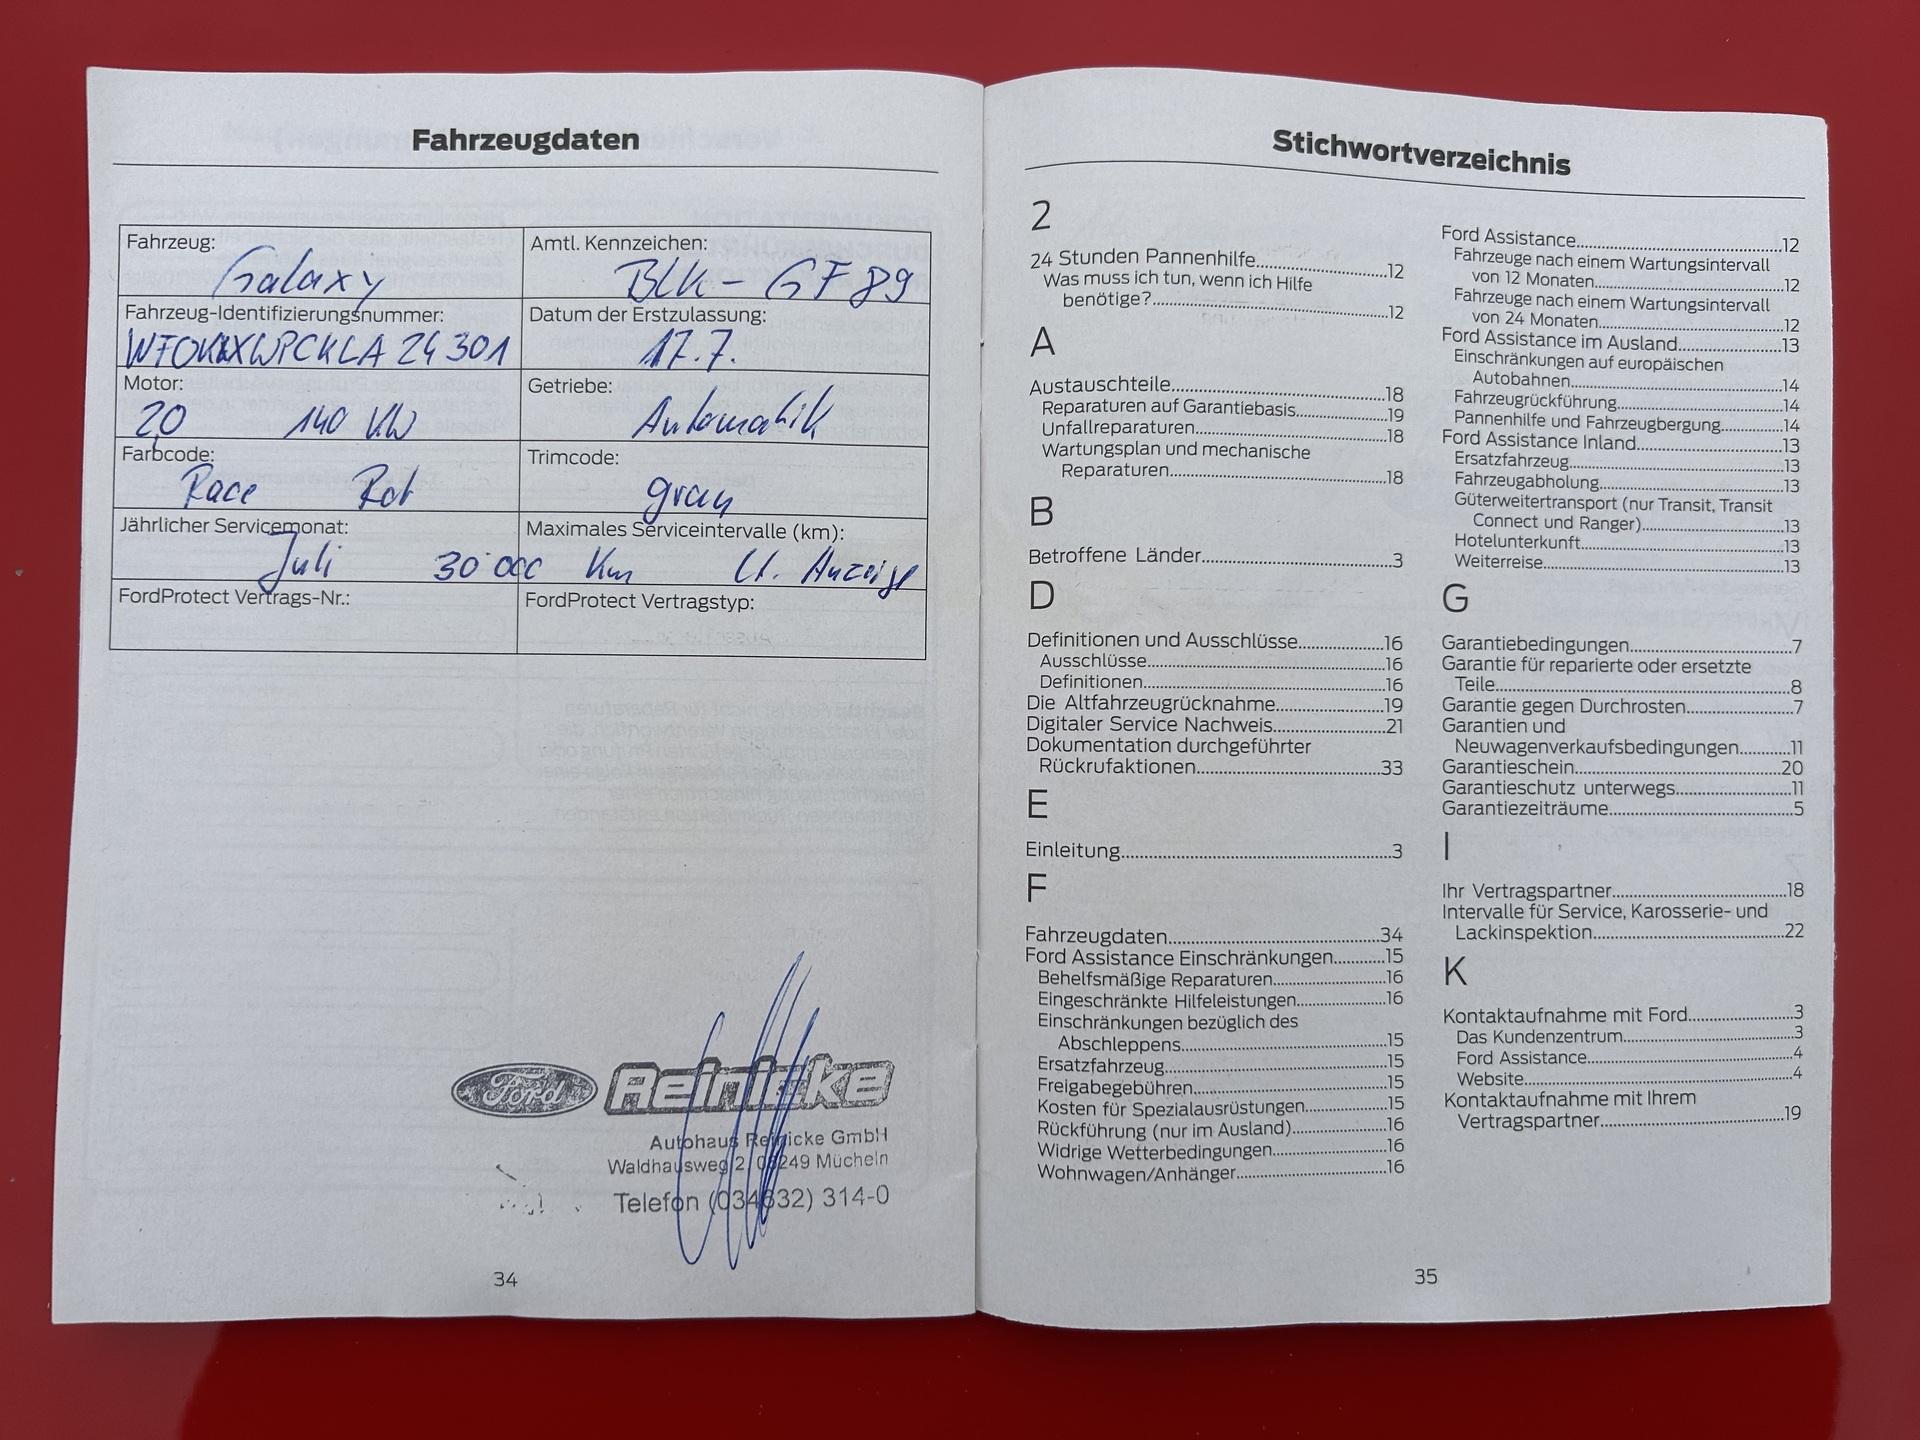 Fahrzeugdaten
Fahrzeug:
Galaxy
Amtl. Kennzeichen:
BLK - GF 89
Fahrzeug-Identifizierungsnummer:
Datum der Erstzulassung:
17.7.
Motor:
2,0 140 KW
Getriebe:
Automatik
Farbcode:
Race Rot
Trimcode:
grau
Jährlicher Servicemonat:
Juli
Maximales Serviceintervalle (km):
30000 Km lt. Anzeige
FordProtect Vertrags-Nr.:
FordProtect Vertragstyp:
Ford Reinicke
Autohaus Reinicke GmbH
Waldhausweg 2, 06249 Mücheln
Telefon (034632) 314-0
34
Stichwortverzeichnis
2
24 Stunden Pannenhilfe 12
Was muss ich tun, wenn ich Hilfe
benötige? 12
A
Austauschteile 18
Reparaturen auf Garantiebasis 19
Unfallreparaturen 18
Wartungsplan und mechanische
Reparaturen 18
B
Betroffene Länder 3
D
Definitionen und Ausschlüsse 16
Ausschlüsse 16
Definitionen 16
Die Altfahrzeugrücknahme 19
Digitaler Service Nachweis 21
Dokumentation durchgeführter
Rückrufaktionen 33
E
Einleitung 3
F
Fahrzeugdaten 34
Ford Assistance Einschränkungen 15
Behelfsmäßige Reparaturen 16
Eingeschränkte Hilfeleistungen 16
Einschränkungen bezüglich des
Abschleppens 15
Ersatzfahrzeug 15
Freigabegebühren 15
Kosten für Spezialausrüstungen 15
Rückführung (nur im Ausland) 16
Widrige Wetterbedingungen 16
Wohnwagen/Anhänger 16
Ford Assistance 12
Fahrzeuge nach einem Wartungsintervall
von 12 Monaten 12
Fahrzeuge nach einem Wartungsintervall
von 24 Monaten 12
Ford Assistance im Ausland 13
Einschränkungen auf europäischen
Autobahnen 14
Fahrzeugrückführung 14
Pannenhilfe und Fahrzeugbergung 14
Ford Assistance Inland 13
Ersatzfahrzeug 13
Fahrzeugabholung 13
Güterweitertransport (nur Transit, Transit
Connect und Ranger) 13
Hotelunterkunft 13
Weiterreise 13
G
Garantiebedingungen 7
Garantie für reparierte oder ersetzte
Teile 8
Garantie gegen Durchrosten 7
Garantien und
Neuwagenverkaufsbedingungen 11
Garantieschein 20
Garantieschutz unterwegs 11
Garantiezeiträume 5
I
Ihr Vertragspartner 18
Intervalle für Service, Karosserie- und
Lackinspektion 22
K
Kontaktaufnahme mit Ford 3
Das Kundenzentrum 3
Ford Assistance 4
Website 4
Kontaktaufnahme mit Ihrem
Vertragspartner 19
35